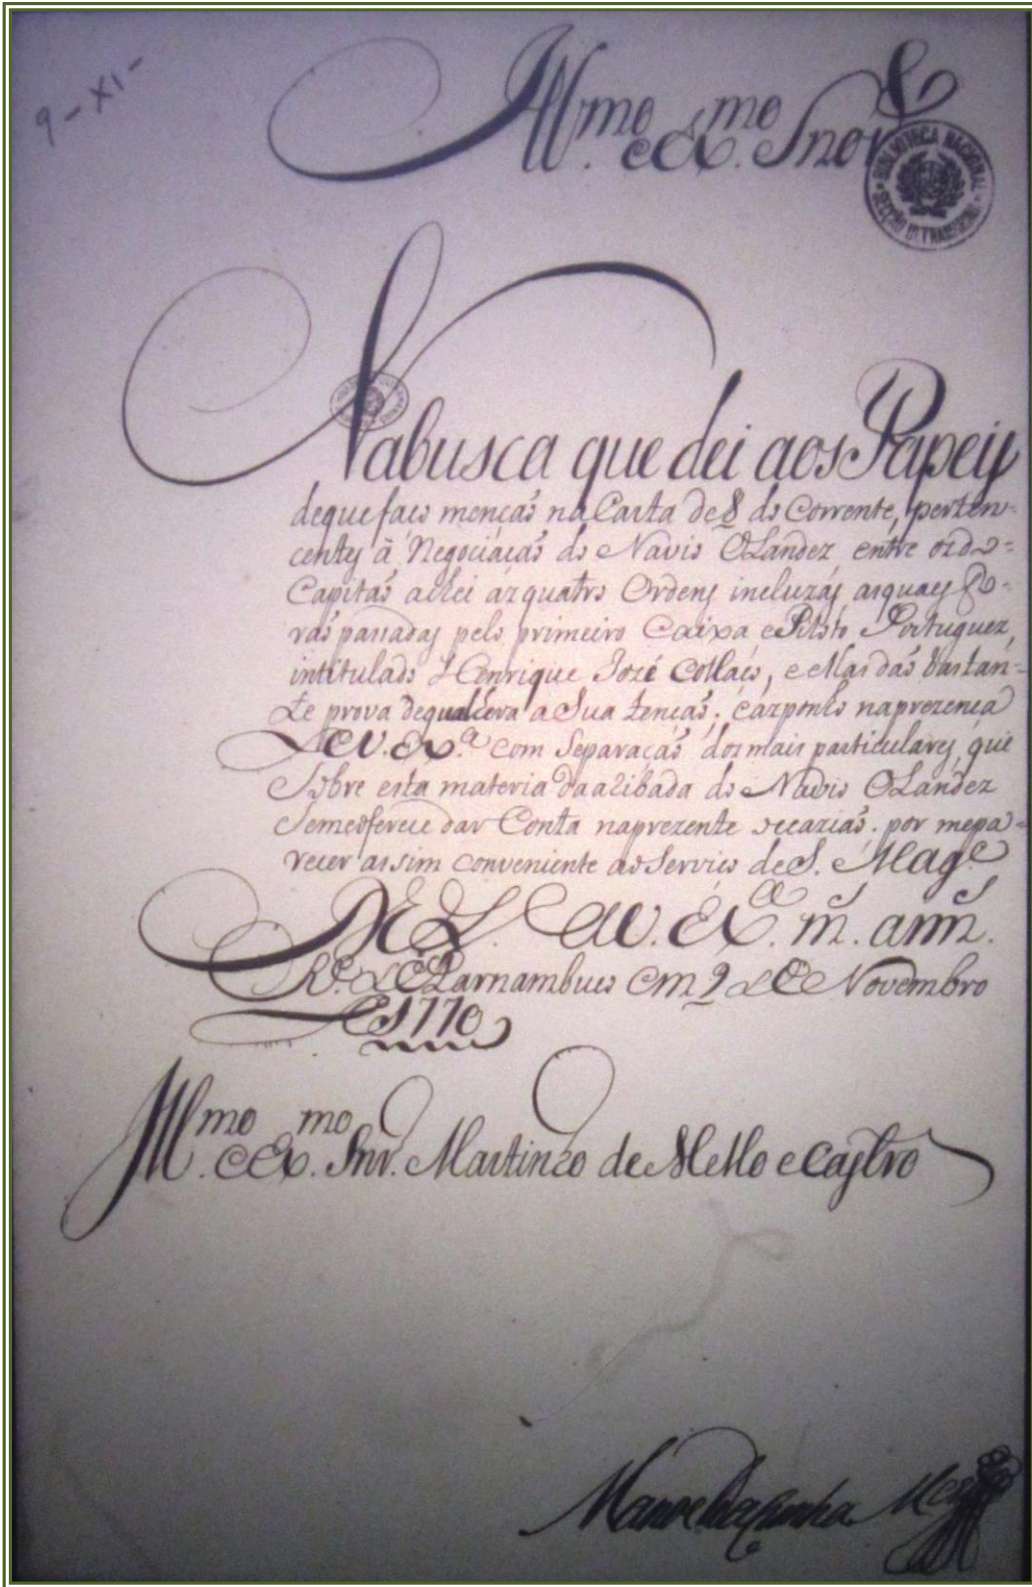 9-XI-
Ill.mo e Ex.mo Snor
BIBLIOTECA NACIONAL
SECÇÃO ULTRAMARINA
Na busca que dei aos Papeis
de que faço menção na Carta de 8 do Corrente, perten-
centes á Negociação do Navio OLandez, entre o seo
Capitão achei as quatro Ordens incluzas, as quaes fo-
rão passadas pelo primeiro Caixa, e Piloto Portuguez,
intitulado Henrique Jozé Collaço, e ellas dão bastan-
te prova de qual era a Sua tenção, e as ponho na prezença
De V. Ex.ª com Separação dos mais particulares, que
Sobre esta materia da aribada do Navio OLandez
Se me oferece dar Conta na prezente occazião, por me pa-
recer assim conveniente ao Serviço de S. Mag.e
D.s G.e a V. Ex.ª m.s ann.s
R.e de Parnambuco em 9 de Novembro
de 1770
Ill.mo e Ex.mo Snr. Martinho de Mello e Castro
Manoel da Cunha Menezes